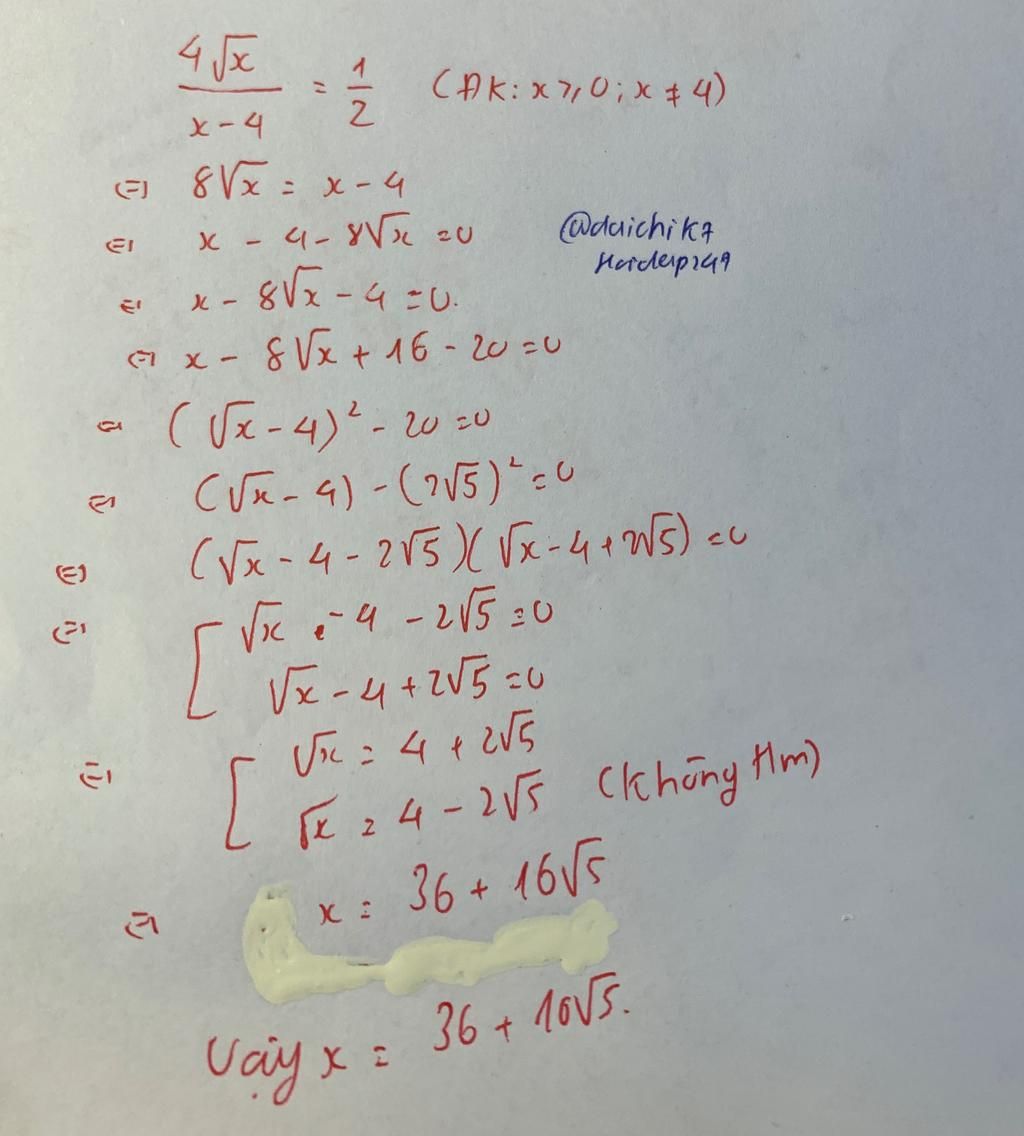 4√x / (x-4) = 1/2 (ĐK: x ⩾ 0; x ≠ 4)
⇔ 8√x = x - 4
⇔ x - 4 - 8√x = 0
@daichik7
⇔ x - 8√x - 4 = 0.
⇔ x - 8√x + 16 - 20 = 0
⇔ (√x - 4)² - 20 = 0
⇔ (√x - 4) - (2√5)² = 0
⇔ (√x - 4 - 2√5)(√x - 4 + 2√5) = 0
⇔ [ √x - 4 - 2√5 = 0
√x - 4 + 2√5 = 0
⇔ [ √x = 4 + 2√5
√x = 4 - 2√5 (không t/m)
⇔ x = 36 + 16√5
Vậy x = 36 + 16√5.